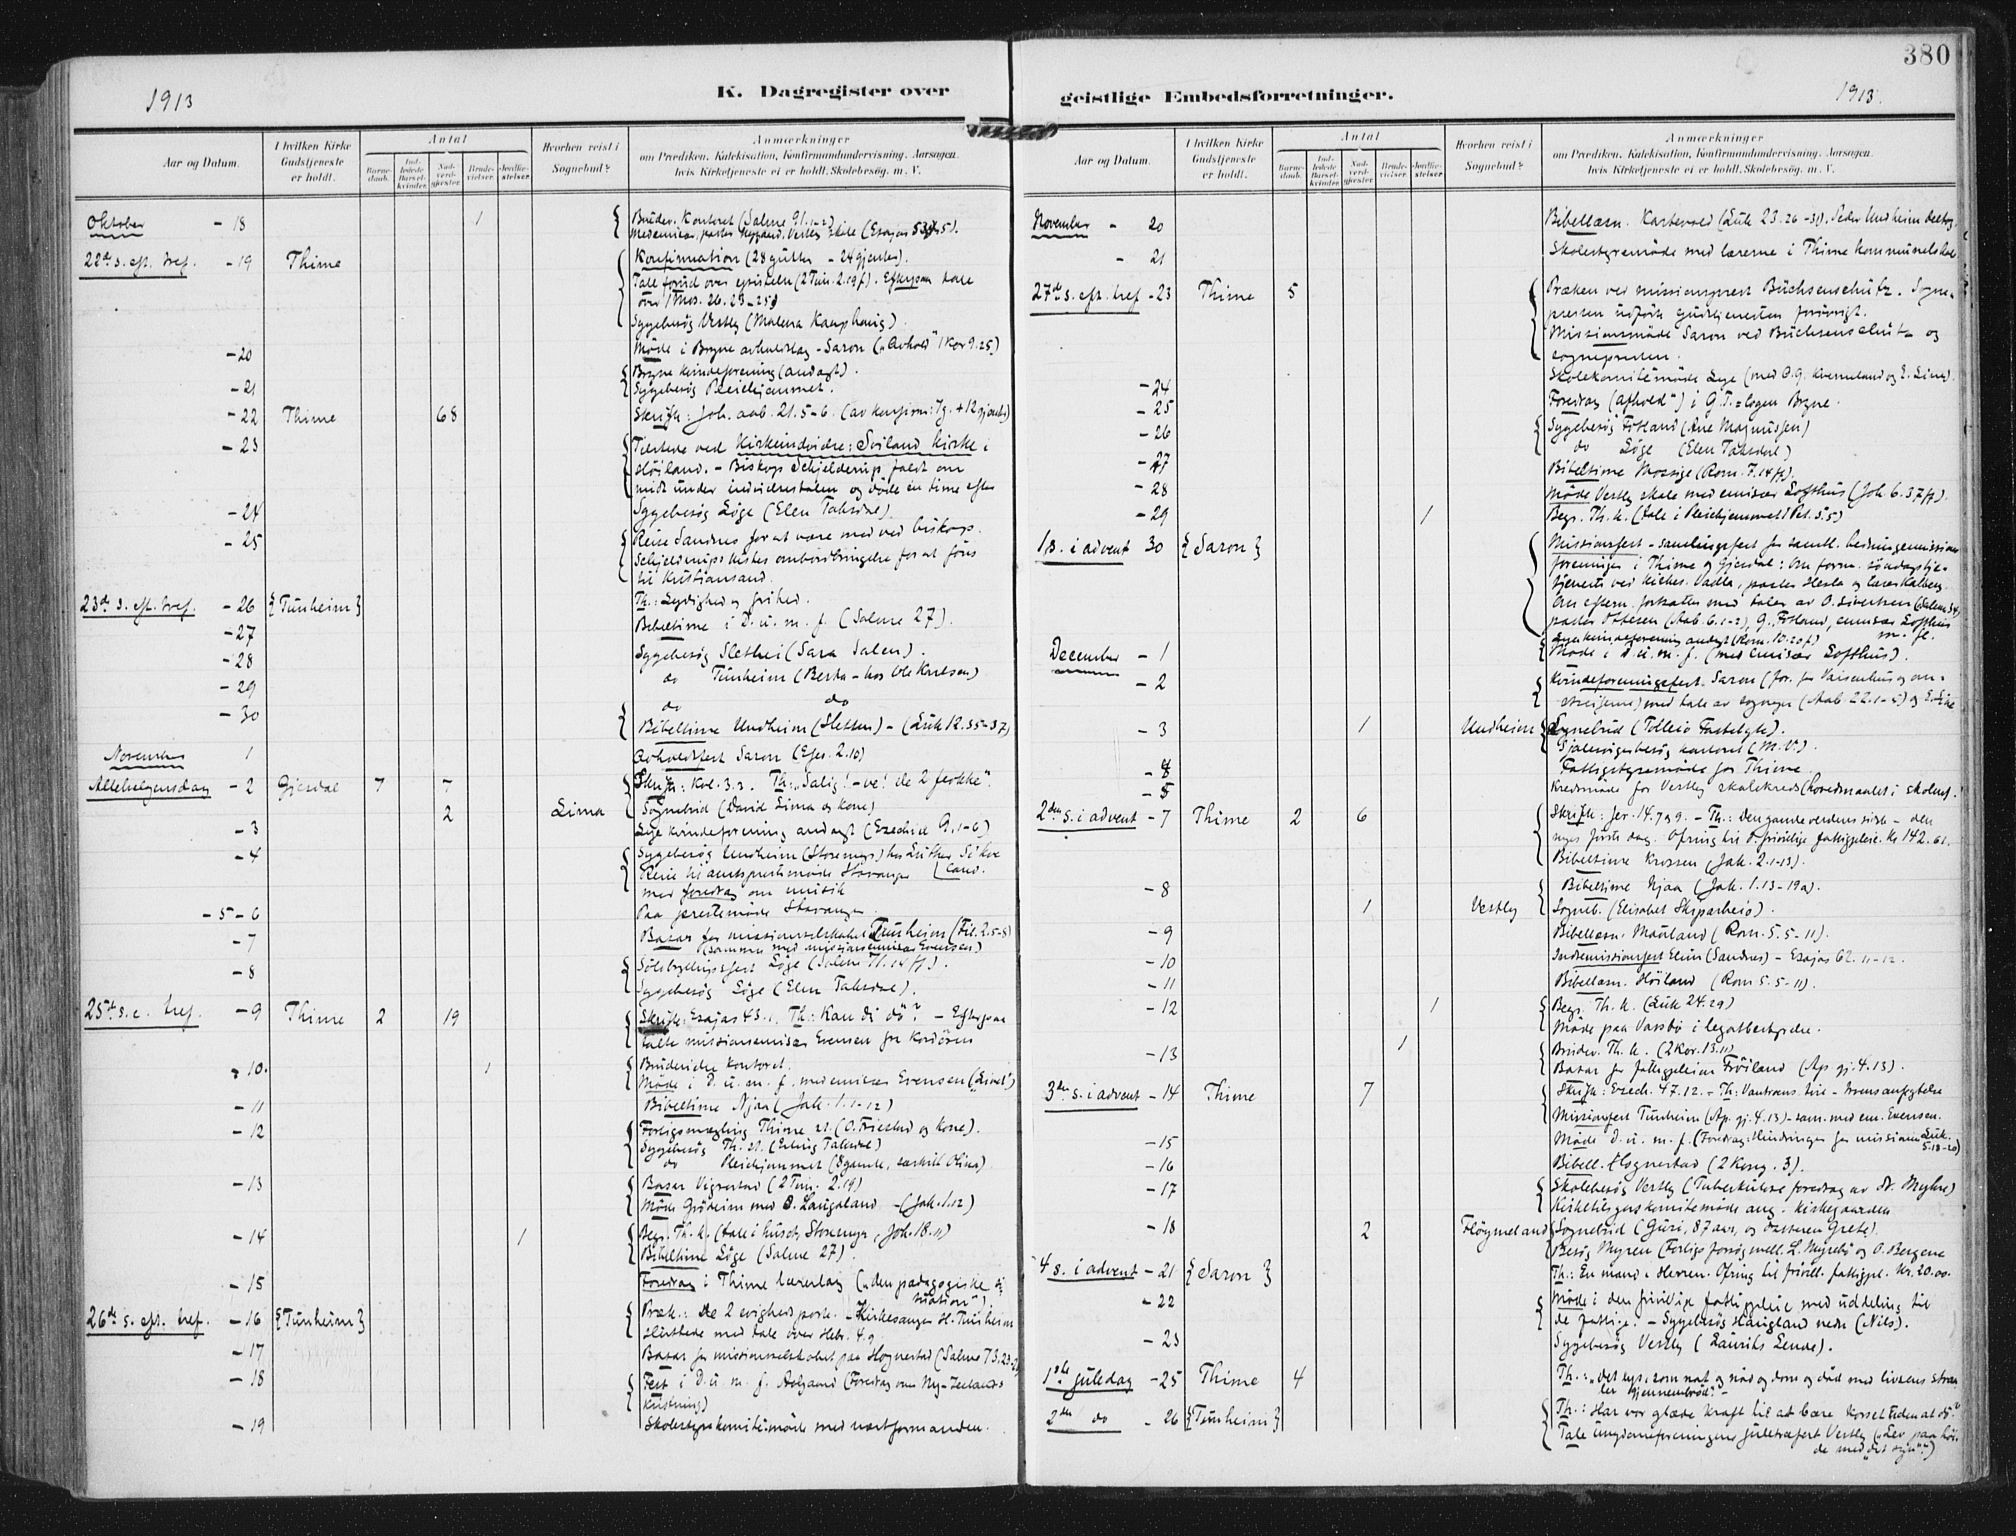 380
1913
1913.
K. Dagregister over
geistlige Embedsforretninger.
Aar og Datum.
I hvilken Kirke Gudstjeneste er holdt.
Antal
Barnedaab.
Indledede Barselkvinder.
Nadverdgjester.
Brudevielser.
Jordfæstelser.
Hvorhen reist i Sognebud?
Anmærkninger
om Prædiken, Katekisation, Konfirmandundervisning. Aarsagen,
hvis Kirketjeneste ei er holdt. Skolebesøg. m. V.
Oktober - 18 1 Brudev. Kontoret (Salme 91.1-2)
22de s. eft. tref. - 19 Thime Konfirmation (28 gutter - 24 gjenter).
Tale forud over epistelen (2 Tim. 2.19f). Eftgpaa tale
over 1 Mos. 26. 23-25)
Sygebesøg Vestly (Malena Kauphanig).
- 20 Møde i Bryne avholdslag - Saron ("Avhold" 1 Kor 9.25)
Bryne kvindeforening (andagt).
- 21 Sygebesøg Pleiehjemmet.
- 22 Thime 68 Skrift: Joh. aab. 21. 5-6.
- 23 Tilstede ved Kirkeindvielse: Sviland kirke i
Høiland. - Biskop Schjelderup faldt om
midt under indvielsestalen og døde en time efter
- 24 Sygebesøg Løge (Elen Taksdal).
- 25 Reise Sandnes for at være med ved biskop
Schjelderups kistes ombordbringelse for at føres
til Kristiansand.
23de s. eft. tref. - 26 {Tunheim} Th.: Lydighed og frihed.
Bibeltime i D. u. m. f. (Salme 27).
- 27
- 28 Sygebesøg Slethei (Sara Salen).
- 29 do Tunheim (Berta - hos Ole Karlsen)
- 30 do do
Bibeltime Undheim (Sletten) - (Luk 12. 35-37)
November 1 Avholdsfest Saron (Efes. 2.10)
Allehelgensdag - 2 Gjesdal 7 7 Skrift: Kol. 3.2. Th: "Salig! - ve! de 2 flokke".
2 Lima Sognebud (David Lima og kone)
- 3 Lye kvindeforening andagt (Ezechiel 9. 1-6)
- 4 Sygebesøg Undheim (Storemyr)
Reise til amtsprestemøde Stavanger
med foredrag om musik
- 5-6 Paa prestemøde Stavanger
- 7 Basar for missionsselskabet Tunheim (Fil. 2.5-8)
(sammen med missionsemissær Evensen)
- 8 Sølvbryllupsfest Løge (Salme 71. 14 ff).
Sygebesøg Løge (Elen Taksdal).
25de s. e. tref. - 9 Thime 2 19 Skrift: Esajas 43.1. Th: Kan du dø? - Eftgpaa
talte missionsemissær Evensen
- 10. 1 Brudevielse kontoret.
Møde i D. u. m. f. med emissær Evensen ("Livet")
- 11 Bibeltime Njaa (Jak. 1. 1-12)
- 12 Forligsmægling Thime st. (O. Friestad og kone).
Sygebesøg Th. st. (Erling Taksdal)
do Pleiehjemmet (8 gamle, særskilt Olina).
- 13 Basar Vigrestad (2 Tim. 2.19)
Møde Grødeim med B. Laugaland - (Jak. 1.12)
- 14 1 Begr. Th. k. (tale i huset, Storemyr, Joh. 18. 11)
Bibeltime Løge (Salme 27).
- 15 Foredrag i Thime lærerlag ("den pædagogiske situation")
26de s. eft. tref. - 16 {Tunheim} Præk.: De 2 evigheds porte. - Kirkesanger H. Tunheim
sluttede med tale over Hebr. 4.9
- 17 Basar for missionsselskabet paa Hognestad
- 18 Fest i D. u. m. f. Aalgaard (Foredrag om Ny-Zeelands
kristning)
- 19 Skolestyrekomitemøde med næstformanden.
Aar og Datum.
I hvilken Kirke Gudstjeneste er holdt.
Antal
Barnedaab.
Indledede Barselkvinder.
Nadverdgjester.
Brudevielser.
Jordfæstelser.
Hvorhen reist i Sognebud?
Anmærkninger
om Prædiken, Katekisation, Konfirmandundervisning. Aarsagen,
hvis Kirketjeneste ei er holdt. Skolebesøg. m. V.
November - 20 Bibellæsn. Kartevold (Luk 23. 26-31).
- 21 Skolestyremøde med lærerne i Thime kommunelokale
27de s. eft. tref - 23 Thime 5 Præken ved missionsprest Büchsenschütz. Sogne-
presten udførte gudstjenesten forøvrigt.
Missionsmøde Saron ved Büchsenschütz og
sognepresten.
- 24 Skolekomitemøde Lye (med O. G. Kverneland og E. Lima).
- 25 Foredrag ("afhold") i G.T.-logen Bryne.
- 26 Sygebesøg Fotland (Ane Magnussen)
do Løge (Elen Taksdal)
- 27 Bibeltime Mossige (Rom. 7. 14 ff).
- 28 Møde Vestly skole med emissær Lofthus (Joh. 6. 37 ff).
- 29 1 Begr. Th. k. (tale i Pleiehjemmet 1 Pet. 5.5)
1 s. i advent 30 {Saron} Missionsfest - samlingsfest for samtl. hedningemissions
foreninger i Thime og Gjesdal: Om form. søndagstje-
tjeneste ved kirkes. Vadla, pastor Hesla og lærer Kalberg.
Om efterm. fortsattes med taler av O. Sivertsen (Salme 34)
pastor Ottesen (Aab. 6. 1-2), G. Fotland, emissær Lofthus
m. fl.
Lye kvindeforening andagt (Rom. 10. 20 f)
December - 1 Møde i D. u. m. f. (med emissær Lofthus).
- 2 Kvindeforeningsfest. Saron (for. for Vaisenhus og om-
streiferne) med tale av sogneprs (Aab 22. 1-5) og E. Lima
- 3 1 Undheim Sognebud (Tolleiv Tastebyte).
Sjælesørgerbesøg kontoret (M. V.).
- 4 Fattigstyremøde for Thime.
- 5 Kredsmøde for Vestly skolekreds (Lovedmaalet i skolen).
2den s. i advent - 7 Thime 2 6 Skrift: Jer. 14. 7 & 9. - Th: Den gamle verdens sidste - den
nyes første dag. Ofring til d. frivillige fattigpleie. Kr 142.61.
Bibeltime Krossen (Jak. 2. 1-13).
- 8 Bibeltime Njaa (Jak. 1. 13-19a).
1 Vestly Sogneb. (Elisabet Skiparheiö).
- 9 Bibellæsn. Mauland (Rom. 5. 5-11).
- 10 Indremissionsfest Elim (Sandnes) - Esajas 62. 11-12.
- 11 Bibellæsn. Høiland (Rom 5. 5-11).
- 12 1 Begr. Th. k. (Luk 24. 29)
Møde paa Vassbø i legatbestyrelse.
- 13 1 Brudev. Th. k. (2 Kor. 13. 11)
Basar for fattigpleien Frøiland (Ap. gj. 4. 13).
3de s. i advent - 14 Thime 7 Skrift: Ezech. 47. 12. - Th: Vantroens tvil - troens anfegtelse
Missionsfest Tunheim (Ap. gj. 4. 13) - sam. med em. Evensen.
- 15 Møde D. u. m. f. (Foredrag: Hindringer for missionen Luk. 5. 18-20)
- 16 Bibell. Hognestad (2 Kong. 3).
- 17 Skolebesøg Vestly (Tuberkulose foredrag av dr. Myhre)
Kirketilsynskomitemøde ang. kirkegaarden
- 18 2 Fløgmeland Sognebud (Guri, 87 aar, og datteren Grete).
Besøg Myren (Forligsforsøg mell. L. Myrebø og O. Bergene
4 s. i advent - 21 {Saron} Th.: En mand i Herren. Ofring til frivill. fattigpl. Kr. 20.00.
- 22 Møde i den frivillige fattigpleie med uddeling til
de fattige. - Sygebesøg Haugland nedre (Nils).
- 23 Sygebesøg Vestly (Laurits Lende).
1ste juledag - 25 Thime 4 Th.: "Det lys, som nat og nød og dom og død med livsens straaler gjennembrød". -
2den do - 26 {Tunheim} Th.: Har vor glæde kraft til at bære korset uden at dø?
Tale ungdomsforeningens juletræfest Vestly ("Lev paa høiden med dit syn"!)